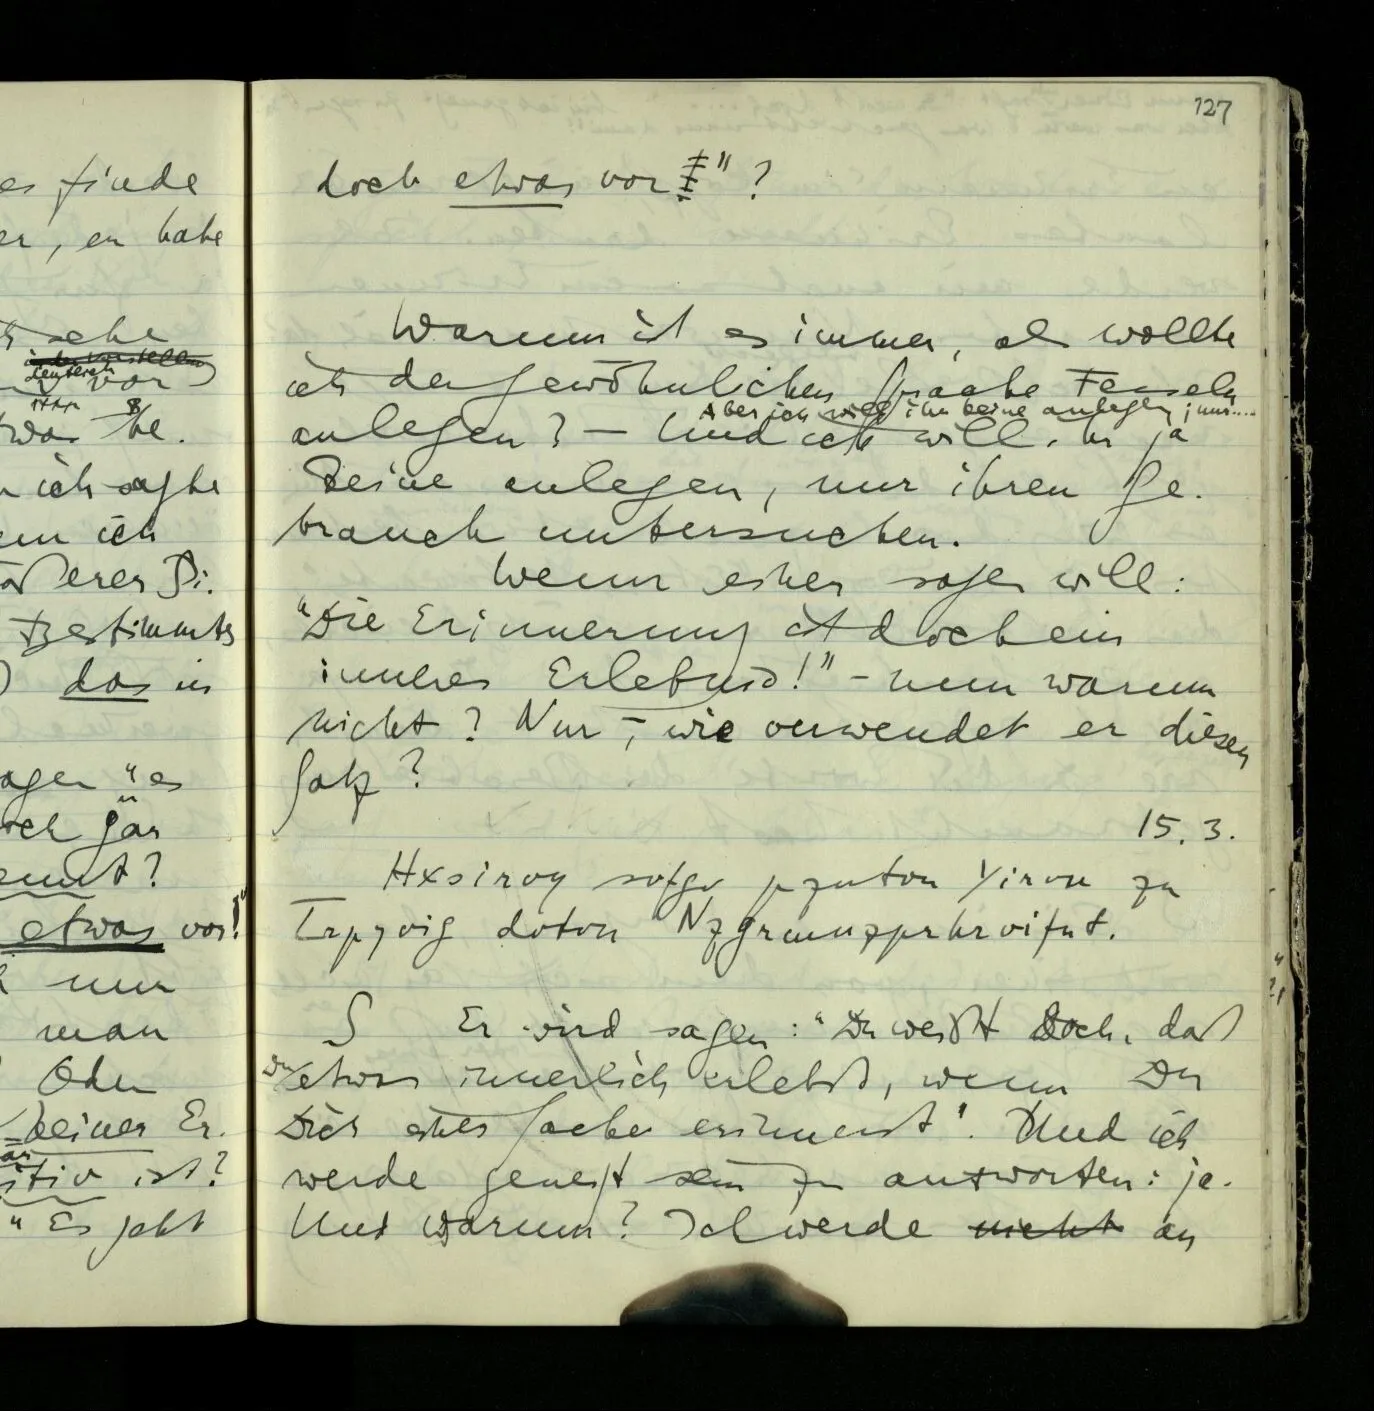 es finde
er, er habe
sehe
vor
etwas
ich sagte
wenn ich
Bestimmtes
das in
sagen "es
doch gar
etwas vor!
nun
man
Oder
keiner Er-
itiv ist?
" Es geht
127
doch etwas vor" ?
Warum ist es immer, als wollte
ich der gewöhnlichen Sprache Fesseln
Aber ich will ihr keine anlegen, nur....
anlegen? – Und ich will ihr ja
keine anlegen, nur ihren Ge-
brauch untersuchen.
Wenn einer sagen will:
"Die Erinnerung ist doch ein
inneres Erlebnis!" – nun warum
nicht? Nur –, wie verwendet er diesen
Satz?
15. 3.
zu
S Er wird sagen: "Du weißt doch, daß
Du etwas innerlich erlebst, wenn Du
Dich einer Sache erinnerst". Und ich
werde geneigt sein zu antworten: ja.
Und warum? Ich werde nicht an